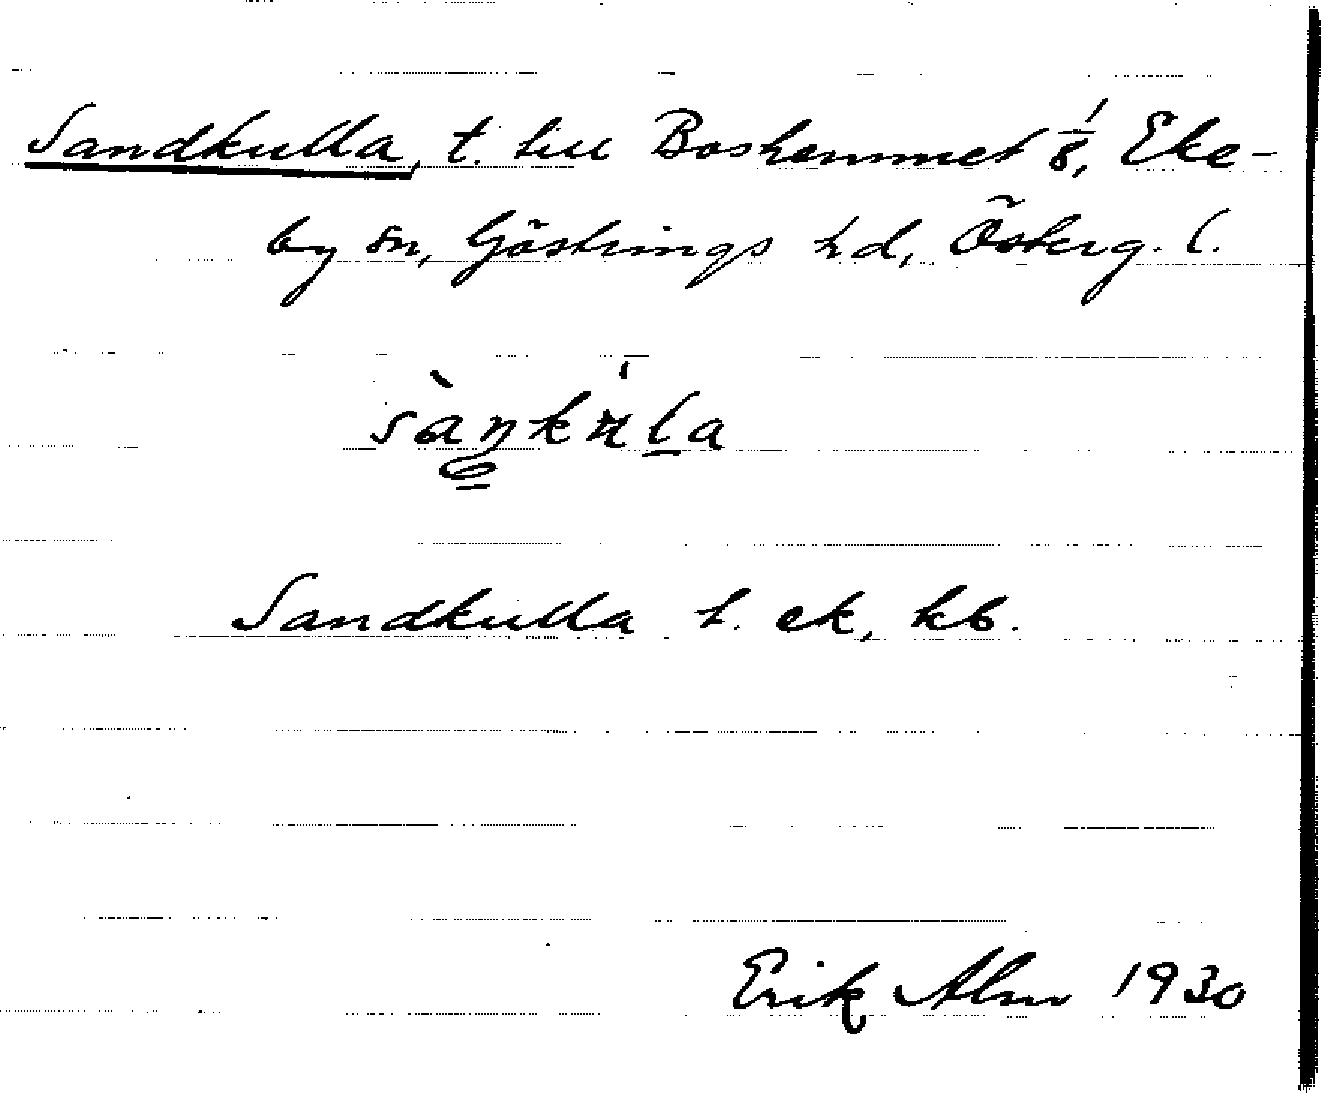 Sandkulla, t. till Boshemmet 1/8, Eke-
by sn, Göstrings hd, Österg. l.
Sandkulla h. ek, kb.
Erik Alm 1930